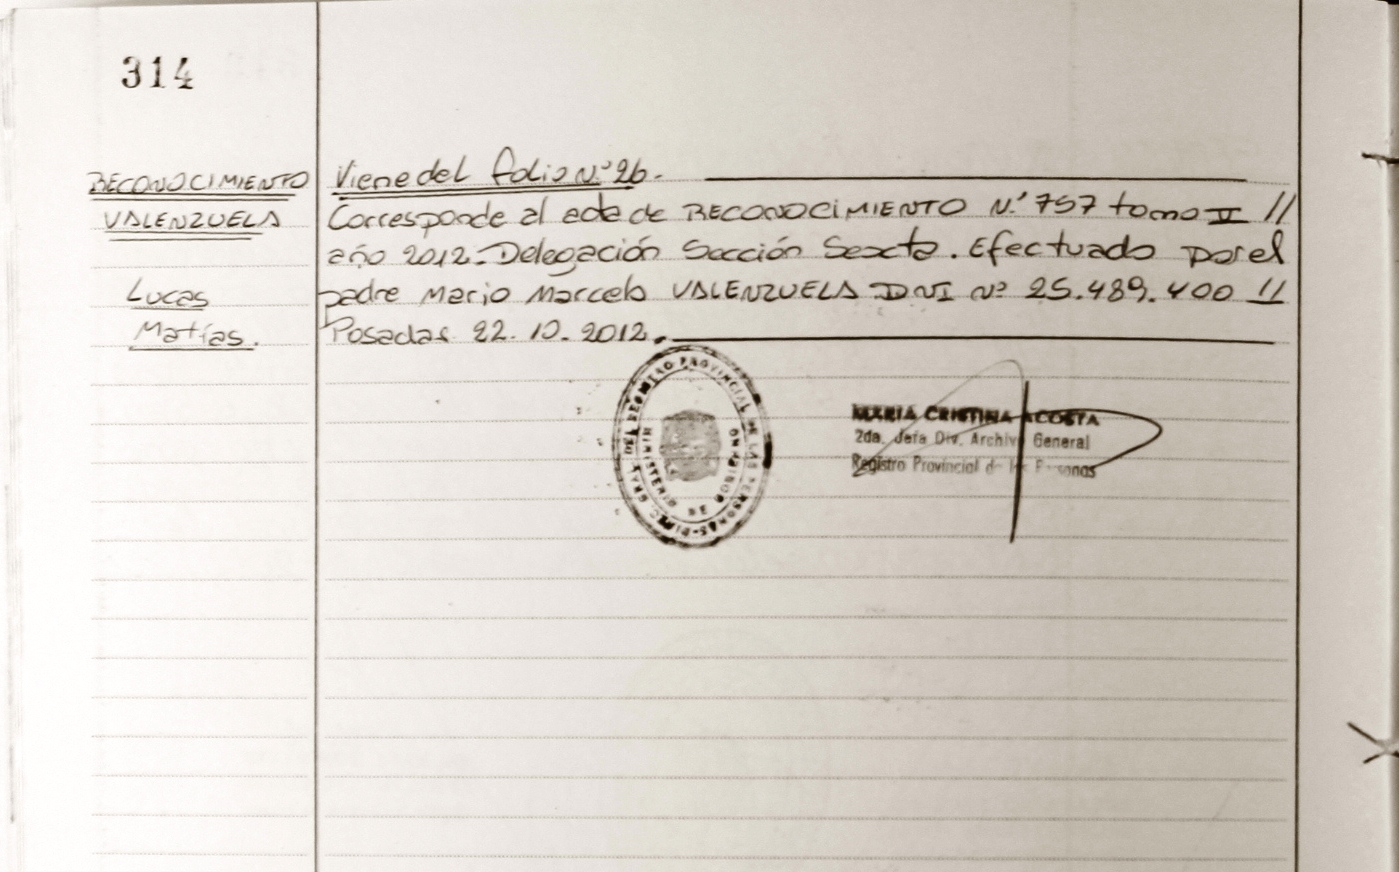 314
RECONOCIMIENTO
VALENZUELA
Lucas
Matías.
Viene del folio N.º 26.
Corresponde al acta de RECONOCIMIENTO N.º 757 tomo II //
año 2012. Delegación Sección Sexta. Efectuado por el
padre Mario Marcelo VALENZUELA DNI Nº 25.489.400 //
Posadas 22.10.2012.
DEL REGISTRO PROVINCIAL DE LAS PERSONAS
MINISTERIO DE GOBIERNO
MARIA CRISTINA ACOSTA
2da. Jefa Div. Archivo General
Registro Provincial de las Personas